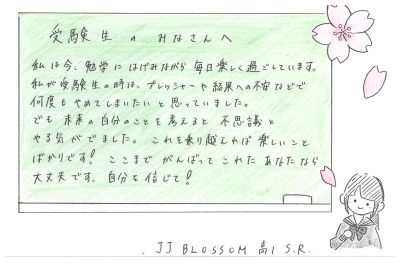 受験生のみなさんへ
私は今、勉学にはげみながら毎日楽しく過ごしています。
私が受験生の時は、プレッシャーや結果への不安などで
何度もやめてしまいたいと思っていました。
でも未来の自分のことを考えると不思議と
やる気がでました。これを乗り越えれば楽しいこと
ばかりです!ここまでがんばってこれたあなたなら
大丈夫です。自分を信じて!
JJ BLOSSOM 高1 S.R.